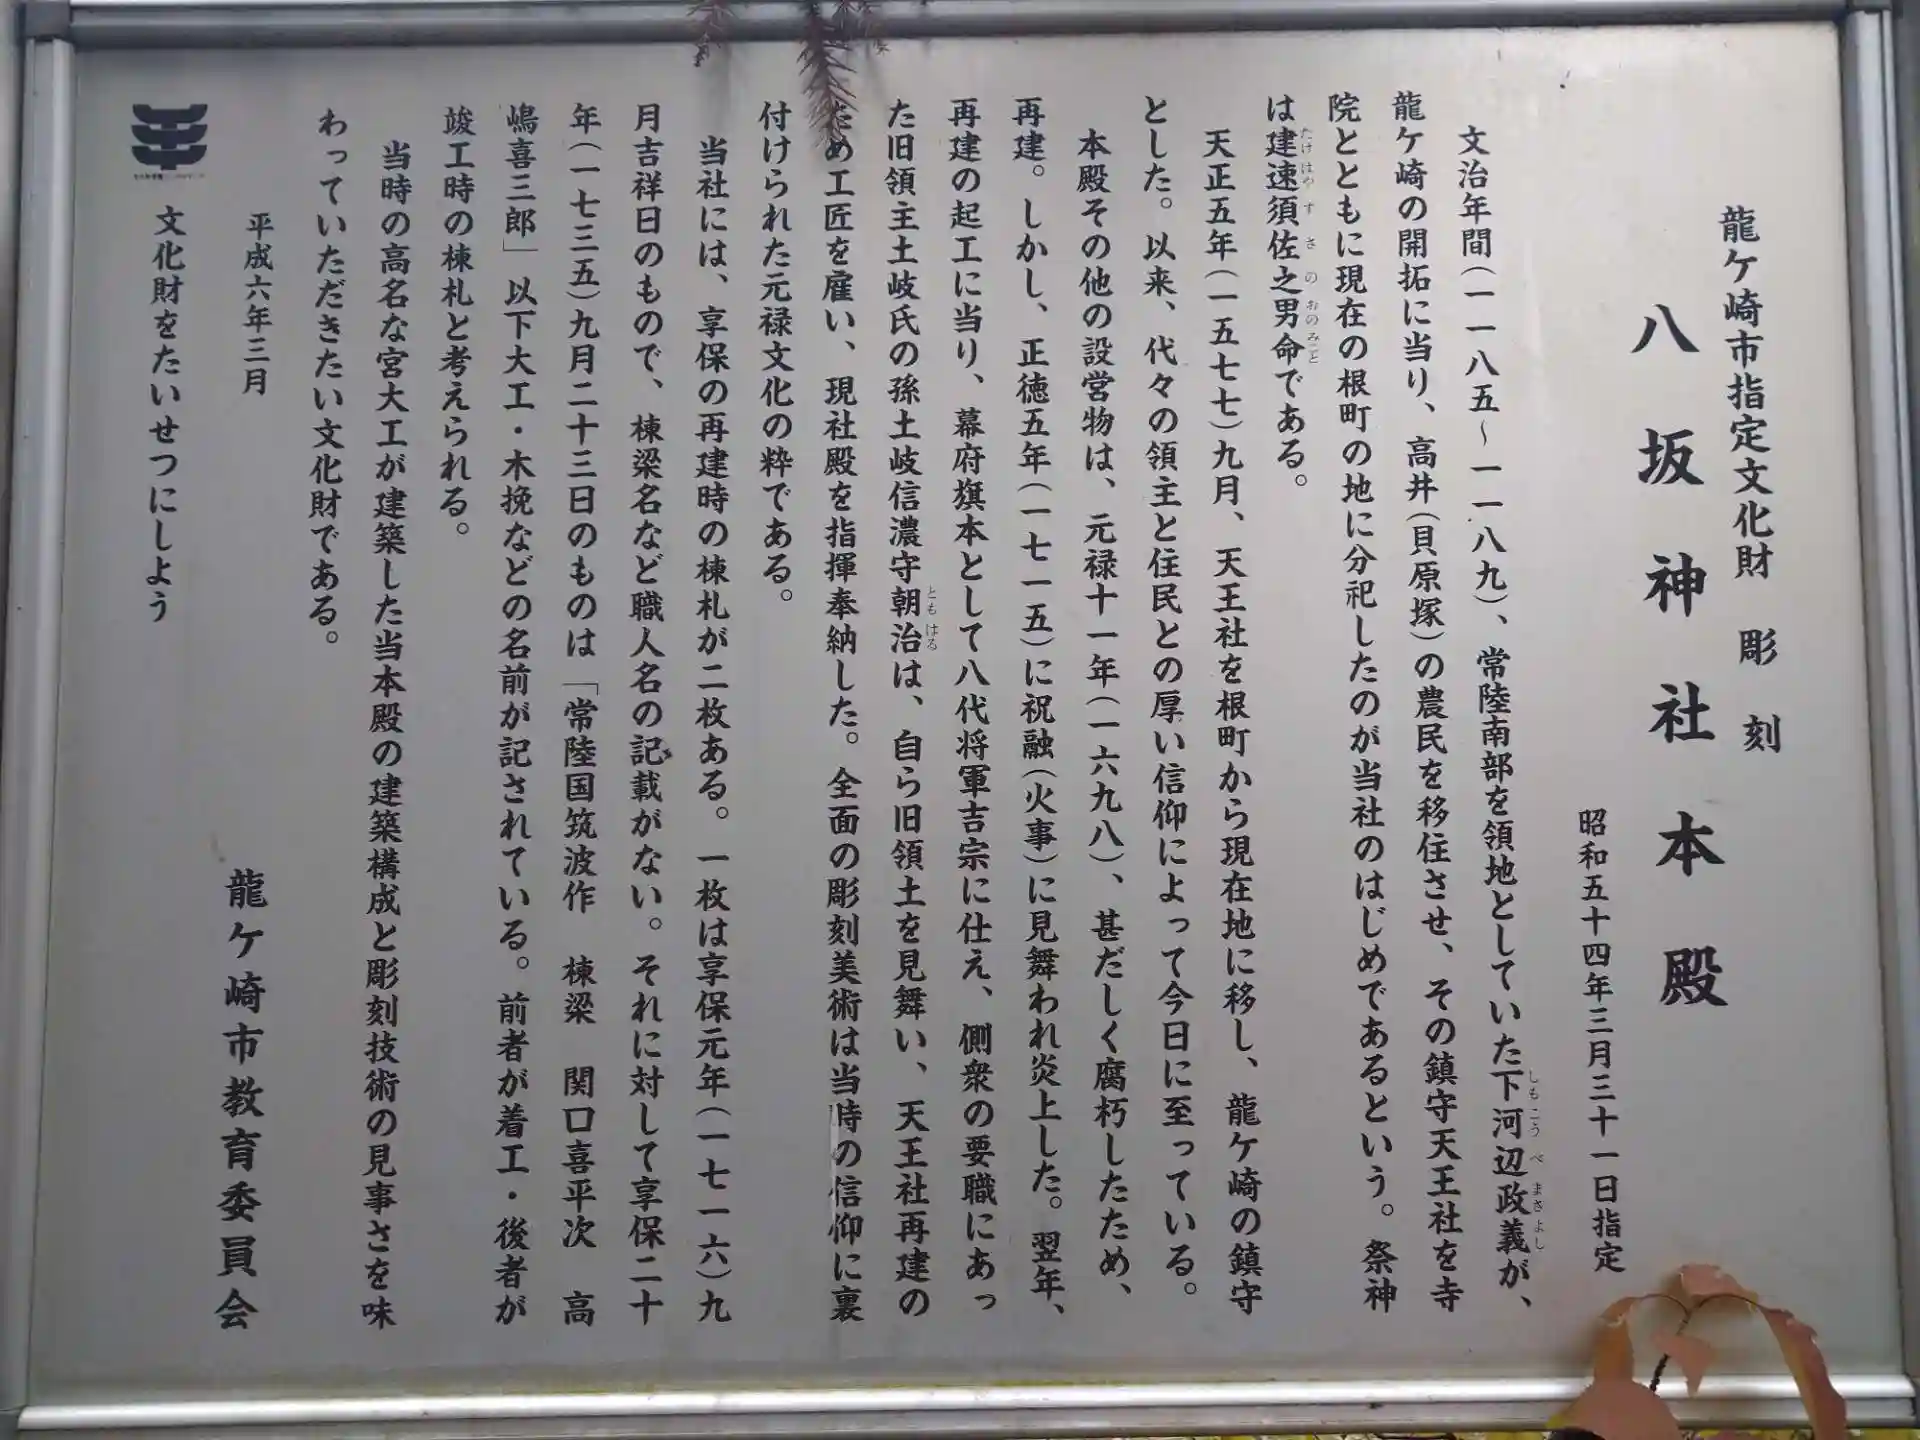 龍ケ崎市指定文化財　彫　刻
八坂神社本殿
昭和五十四年三月三十一日指定
文治年間(一一八五～一一八九)、常陸南部を領地としていた下河辺政義が、
龍ケ崎の開拓に当り、高井(貝原塚)の農民を移住させ、その鎮守天王社を寺
院とともに現在の根町の地に分祀したのが当社のはじめであるという。祭神
は建速須佐之男命である。
天正五年(一五七七)九月、天王社を根町から現在地に移し、龍ケ崎の鎮守
とした。以来、代々の領主と住民との厚い信仰によって今日に至っている。
本殿その他の設営物は、元禄十一年(一六九八)、甚だしく腐朽したため、
再建。しかし、正徳五年(一七一五)に祝融(火事)に見舞われ炎上した。翌年、
再建の起工に当り、幕府旗本として八代将軍吉宗に仕え、側衆の要職にあっ
た旧領主土岐氏の孫土岐信濃守朝治は、自ら旧領土を見舞い、天王社再建の
ため工匠を雇い、現社殿を指揮奉納した。全面の彫刻美術は当時の信仰に裏
付けられた元禄文化の粋である。
当社には、享保の再建時の棟札が二枚ある。一枚は享保元年(一七一六)九
月吉祥日のもので、棟梁名など職人名の記載がない。それに対して享保二十
年(一七三五)九月二十三日のものは「常陸国筑波作　棟梁　関口喜平次　高
嶋喜三郎」以下大工・木挽などの名前が記されている。前者が着工・後者が
竣工時の棟札と考えられる。
当時の高名な宮大工が建築した当本殿の建築構成と彫刻技術の見事さを味
わっていただきたい文化財である。
平成六年三月
龍ケ崎市教育委員会
文化財をたいせつにしよう
しもこうべ まさよし
たけはやすさのおのみこと
ともはる